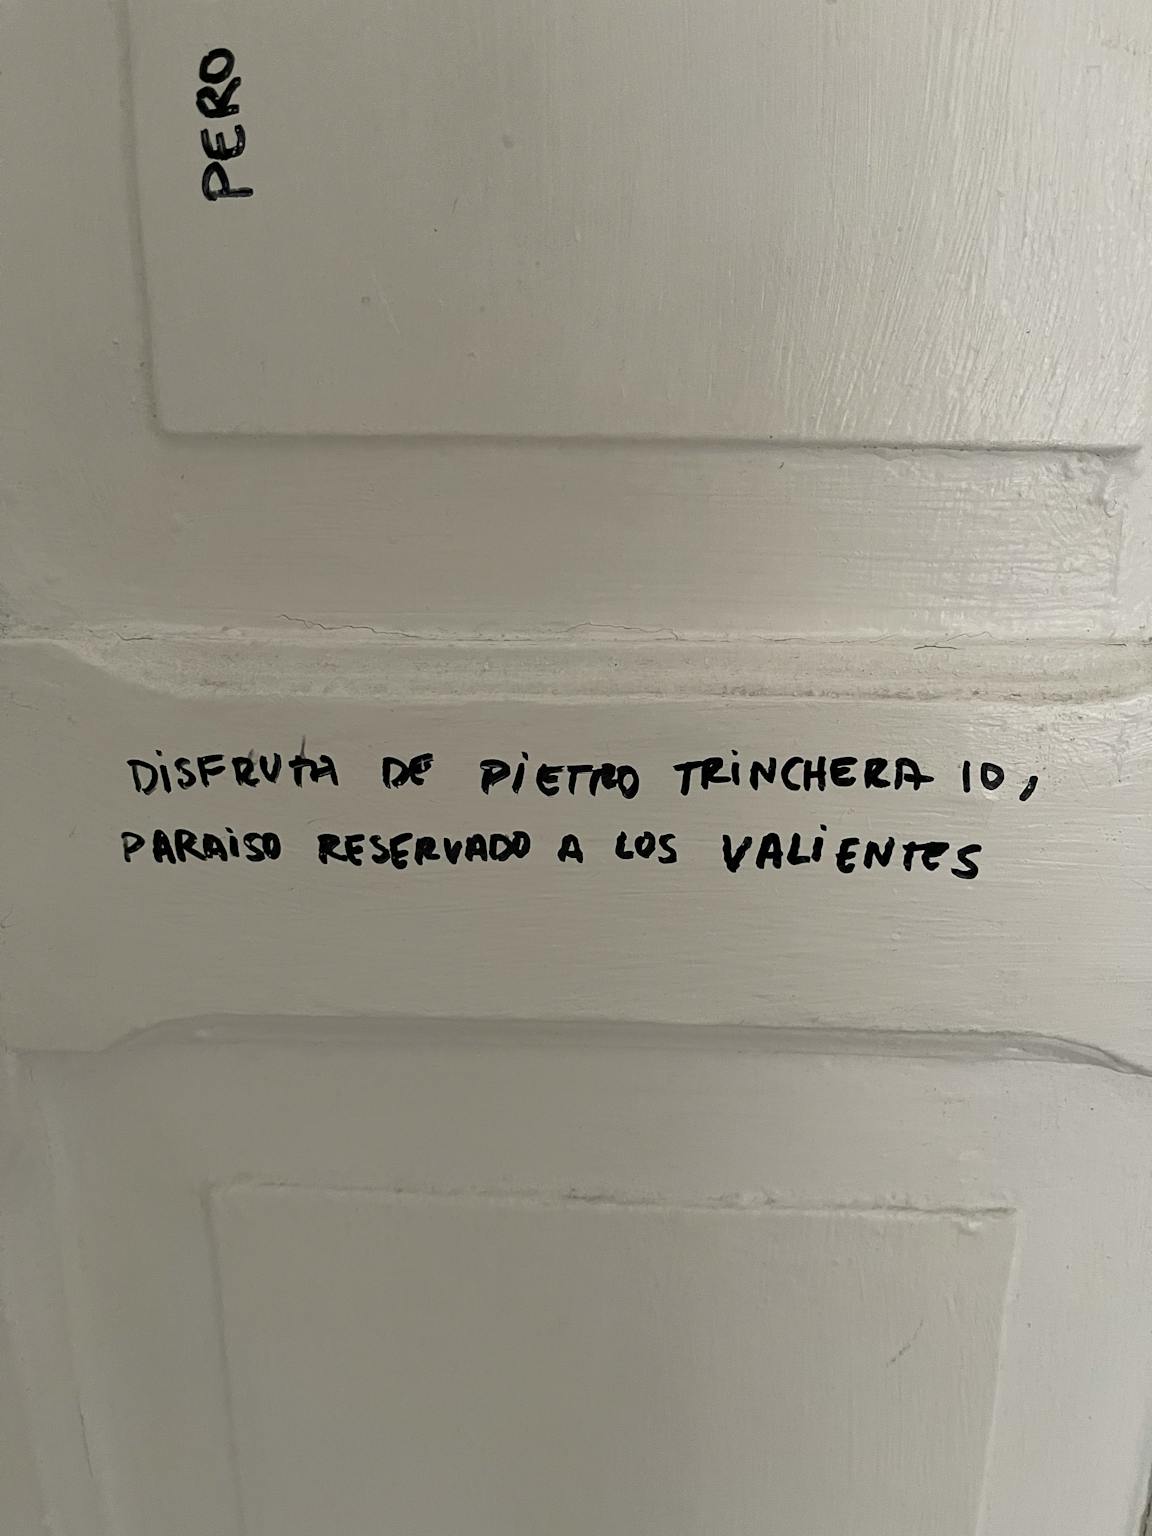 PERO
DISFRUTA DE PIETRO TRINCHERA 10,
PARAISO RESERVADO A LOS VALIENTES